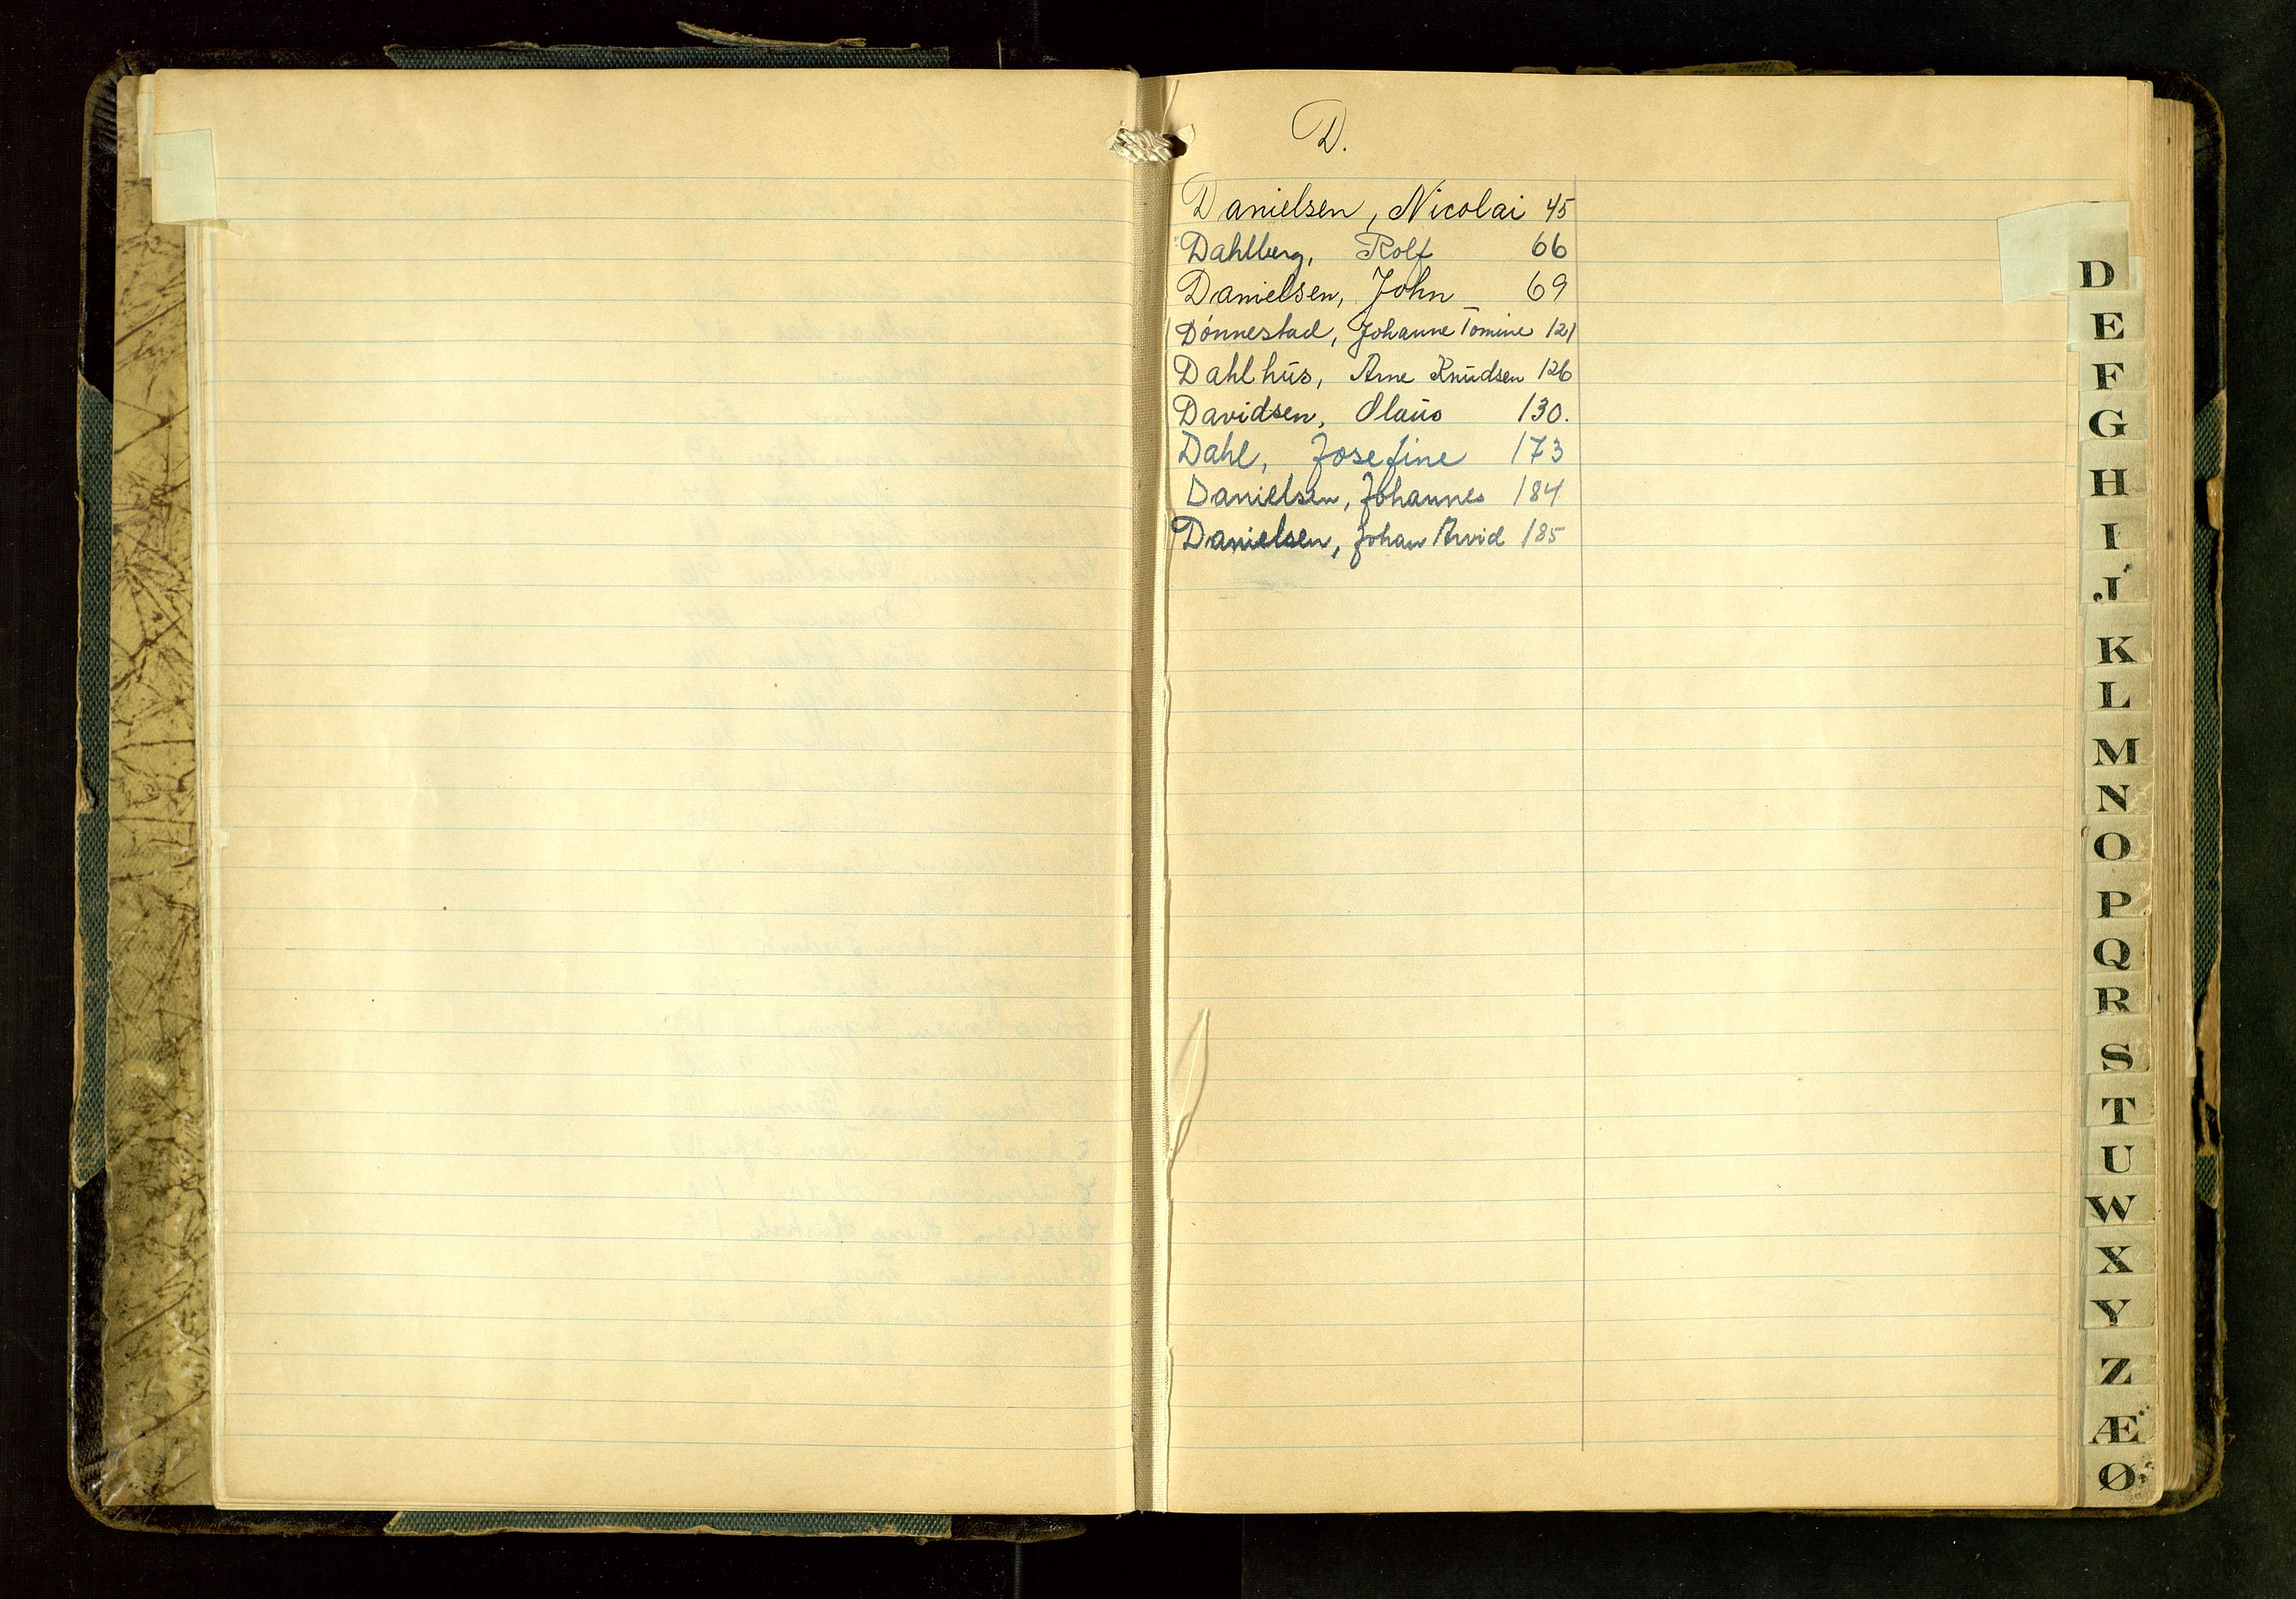 D.
Danielsen, Nicolai 45
Dahlberg, Rolf 66
Danielsen, John 69
Dónnestad, Johanne Tomine 121
Dahlhüs, Arne Knüdsen 126
Davidsen, Olaüs 130.
Dahl, Josefine 173
Danielsen, Johannes 184
Danielsen, Johan Arvid 185
D
E
F
G
H
I
J
K
L
M
N
O
P
Q
R
S
T
U
W
X
Y
Z
Æ
Ø